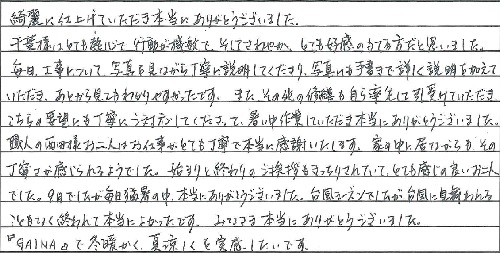 綺麗に仕上げていただき本当にありがとうございました。
千葉様はとても熱心で行動が機敏で、そしてさわやか、とても好感のもてる方だと思いました。
毎日、工事について、写真を見ながら丁寧に説明してくださり、写真にも手書きで詳しく説明を加えて
いただき、あとから見てもわかりやすかったです。また、その他の修繕も自ら率先して引受けていただき
こちらの要望にも丁寧に対応してくださって、暑い中作業していただき本当にありがとうございました。
職人の西田様お二人はお仕事がとても丁寧で本当に感謝いたします。家の中に居ながらもその
丁寧さが感じられるようでした。始まりと終わりのご挨拶もきっちりされていて、とても感じの良いお二人
でした。9月でしたが毎日猛暑の中、本当にありがとうございました。台風シーズンでしたが台風に見舞われる
こともなく終われて本当によかったです。みなさま本当にありがとうございました。
『GAINA』で冬暖かく、夏涼しくを実感したいです。